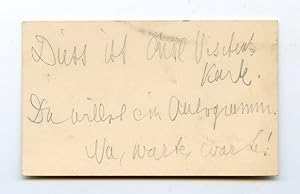 Dies ist eine Visiten-
Karte.
Du willst ein Autogramm.
Na, warte, warte!